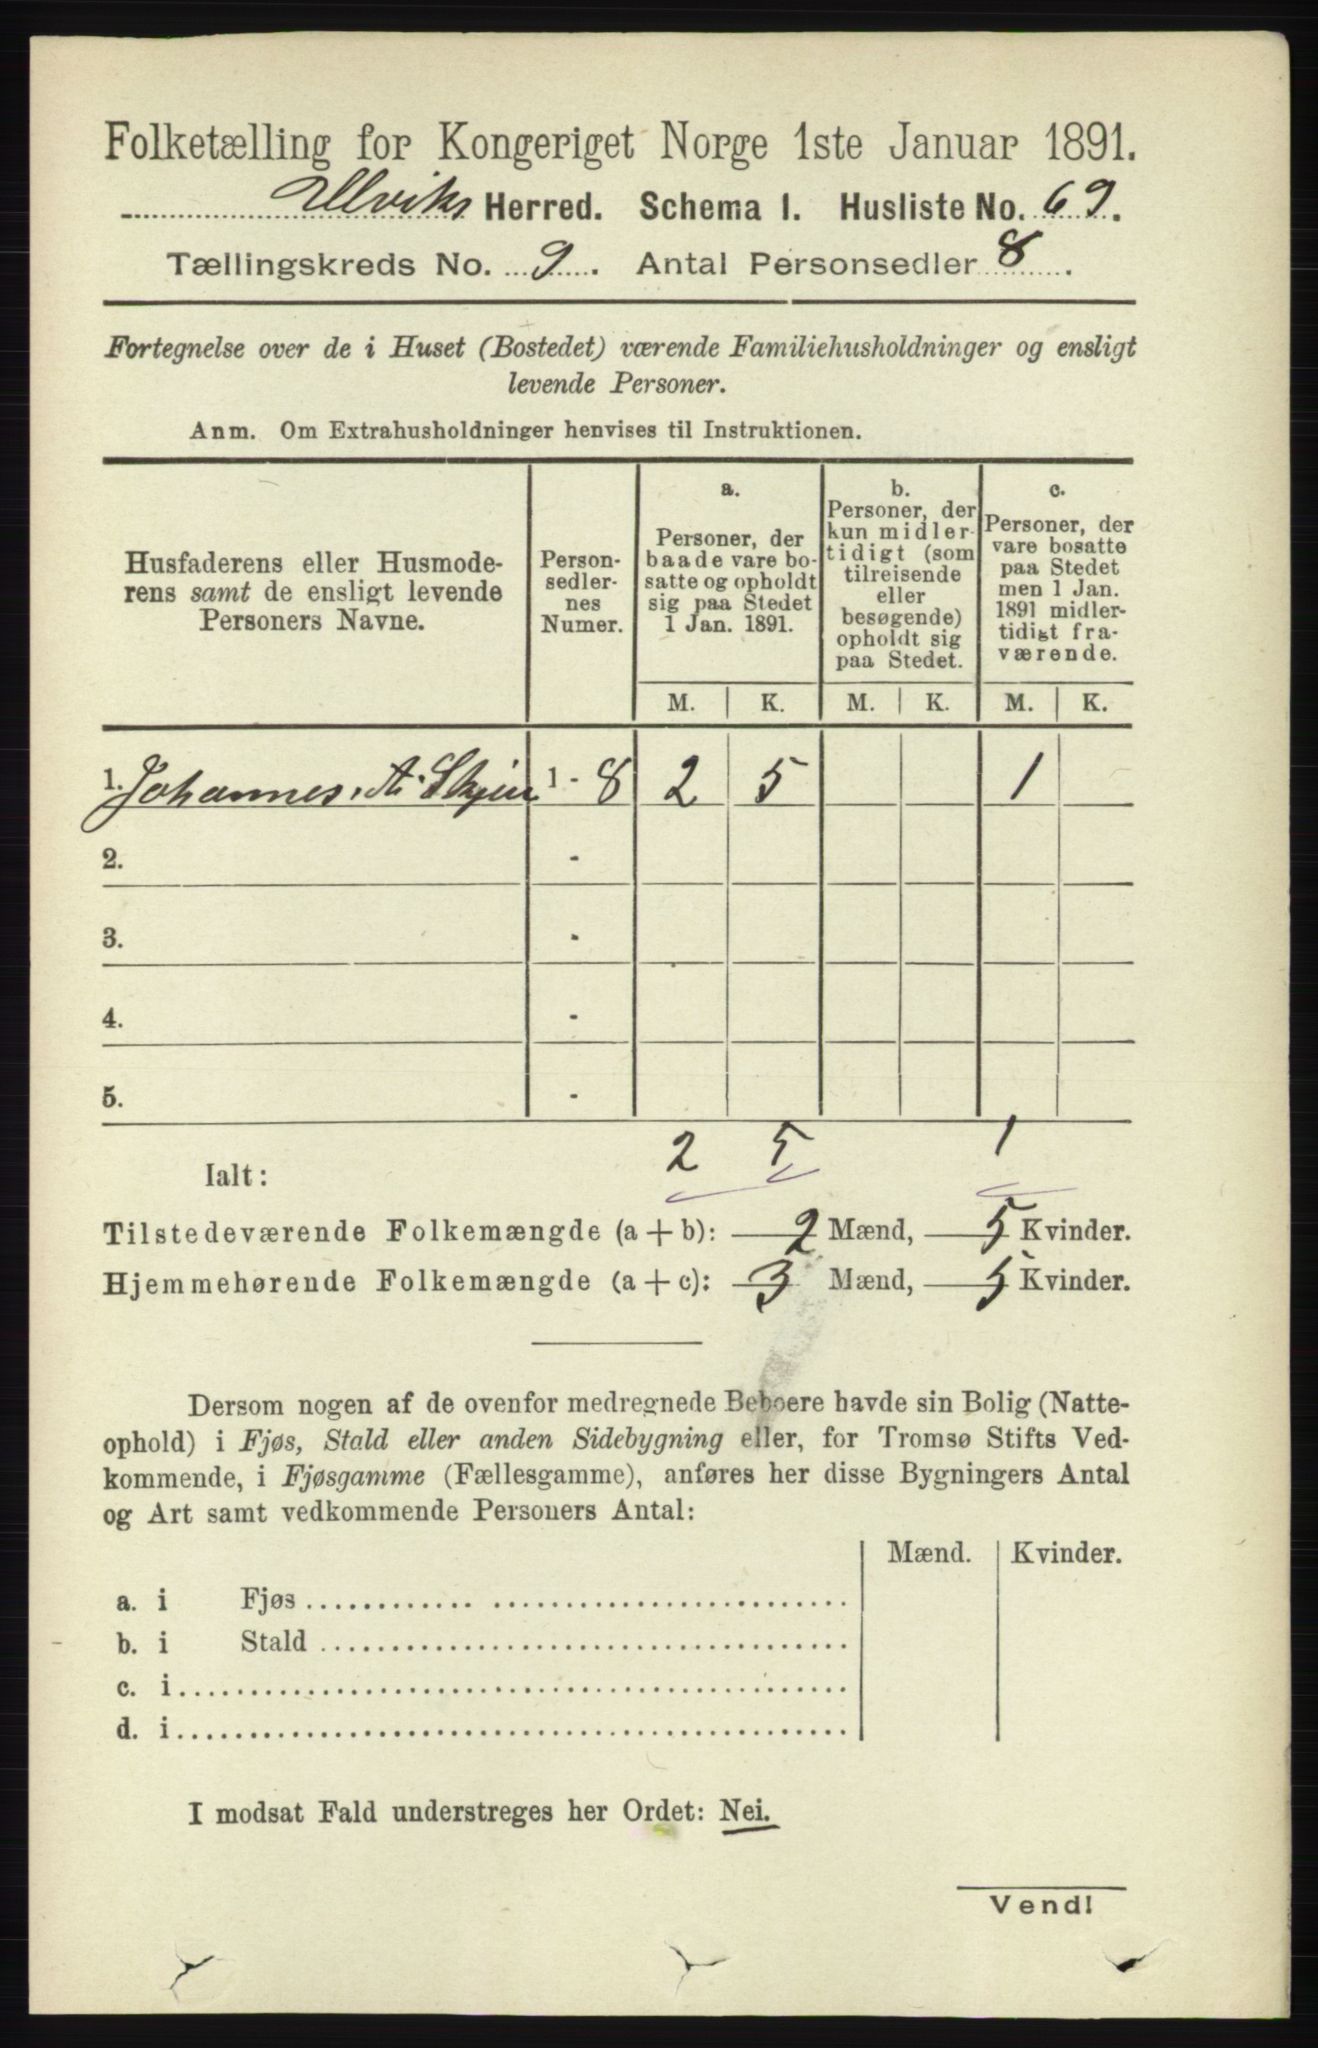 Folketælling for Kongeriget Norge 1ste Januar 1891.
Ulviks Herred. Schema I. Husliste No. 69.
Tællingskreds No. 9. Antal Personsedler 8.
Fortegnelse over de i Huset (Bostedet) værende Familiehusholdninger og ensligt
levende Personer.
Anm. Om Extrahusholdninger henvises til Instruktionen.
Husfaderens eller Husmode-
rens samt de ensligt levende
Personers Navne.
Person-
sedler-
nes
Numer.
a.
Personer, der
baade vare bo-
satte og opholdt
sig paa Stedet
1 Jan. 1891.
b.
Personer, der
kun midler-
tidigt (som
tilreisende
eller
besøgende)
opholdt sig
paa Stedet.
c.
Personer, der
vare bosatte
paa Stedet
men 1 Jan.
1891 midler-
tidigt fra-
værende.
M. K. M. K. M. K.
1. Johannes. A. Skjen 1 - 8 2 5 1
2. -
3. -
4. -
5. -
Ialt: 2 5 1
Tilstedeværende Folkemængde (a + b): 2 Mænd, 5 Kvinder.
Hjemmehørende Folkemængde (a + c): 3 Mænd, 5 Kvinder.
Dersom nogen af de ovenfor medregnede Beboere havde sin Bolig (Natte-
ophold) i Fjøs, Stald eller anden Sidebygning eller, for Tromsø Stifts Ved-
kommende, i Fjøsgamme (Fællesgamme), anføres her disse Bygningers Antal
og Art samt vedkommende Personers Antal:
Mænd. Kvinder.
a. i Fjøs
b. i Stald
c. i
d. i
I modsat Fald understreges her Ordet: Nei.
Vend!